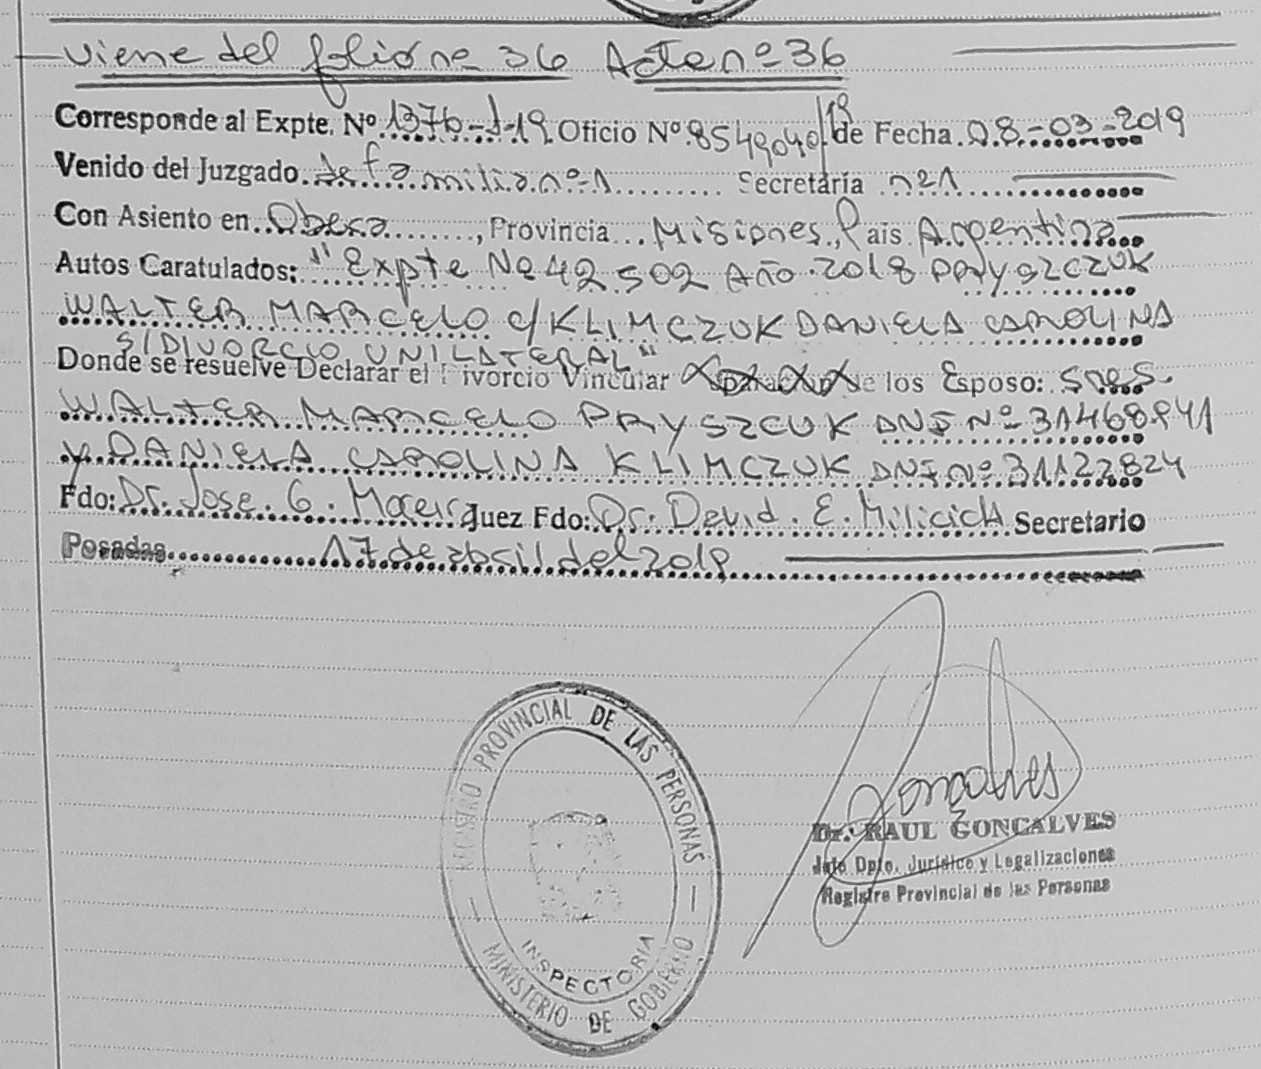 viene del folio nº 36 Acta nº 36
Corresponde al Expte. Nº 1376-J-19 Oficio Nº 8549040/19 de Fecha 08-03-2019
Venido del Juzgado de familia nº 1 Secretaría nº 1
Con Asiento en Obera, Provincia Misiones, Pais Argentina
Autos Caratulados: "Expte Nº 42502 Año 2018 PRYSZCZUK
WALTER MARCELO C/KLIMCZUK DANIELA CAROLINA
S/DIVORCIO UNILATERAL"
Donde se resuelve Declarar el Divorcio Vincular de los Esposo: Sres.
WALTER MARCELO PRYSZCUK DNI Nº 31468941
y DANIELA CAROLINA KLIMCZUK DNI nº 31122824
Fdo: Dr. Jose. G. Juez Fdo: Dr. David. E. Milicich Secretario
Posadas 17 de abril del 2019
REGISTRO PROVINCIAL DE LAS PERSONAS
INSPECTORIA
MINISTERIO DE GOBIERNO
Gonçalves
Dr. RAUL GONCALVES
Jefe Dpto. Jurídico y Legalizaciones
Registro Provincial de las Personas